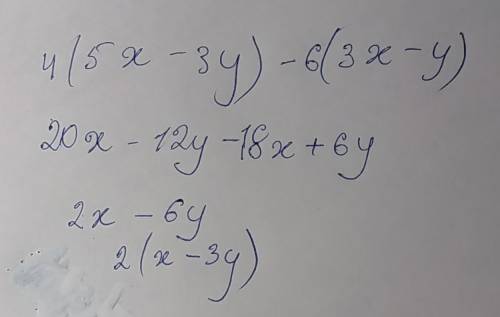 4(5x - 3y) - 6(3x - y)
20x - 12y - 18x + 6y
2x - 6y
2(x - 3y)